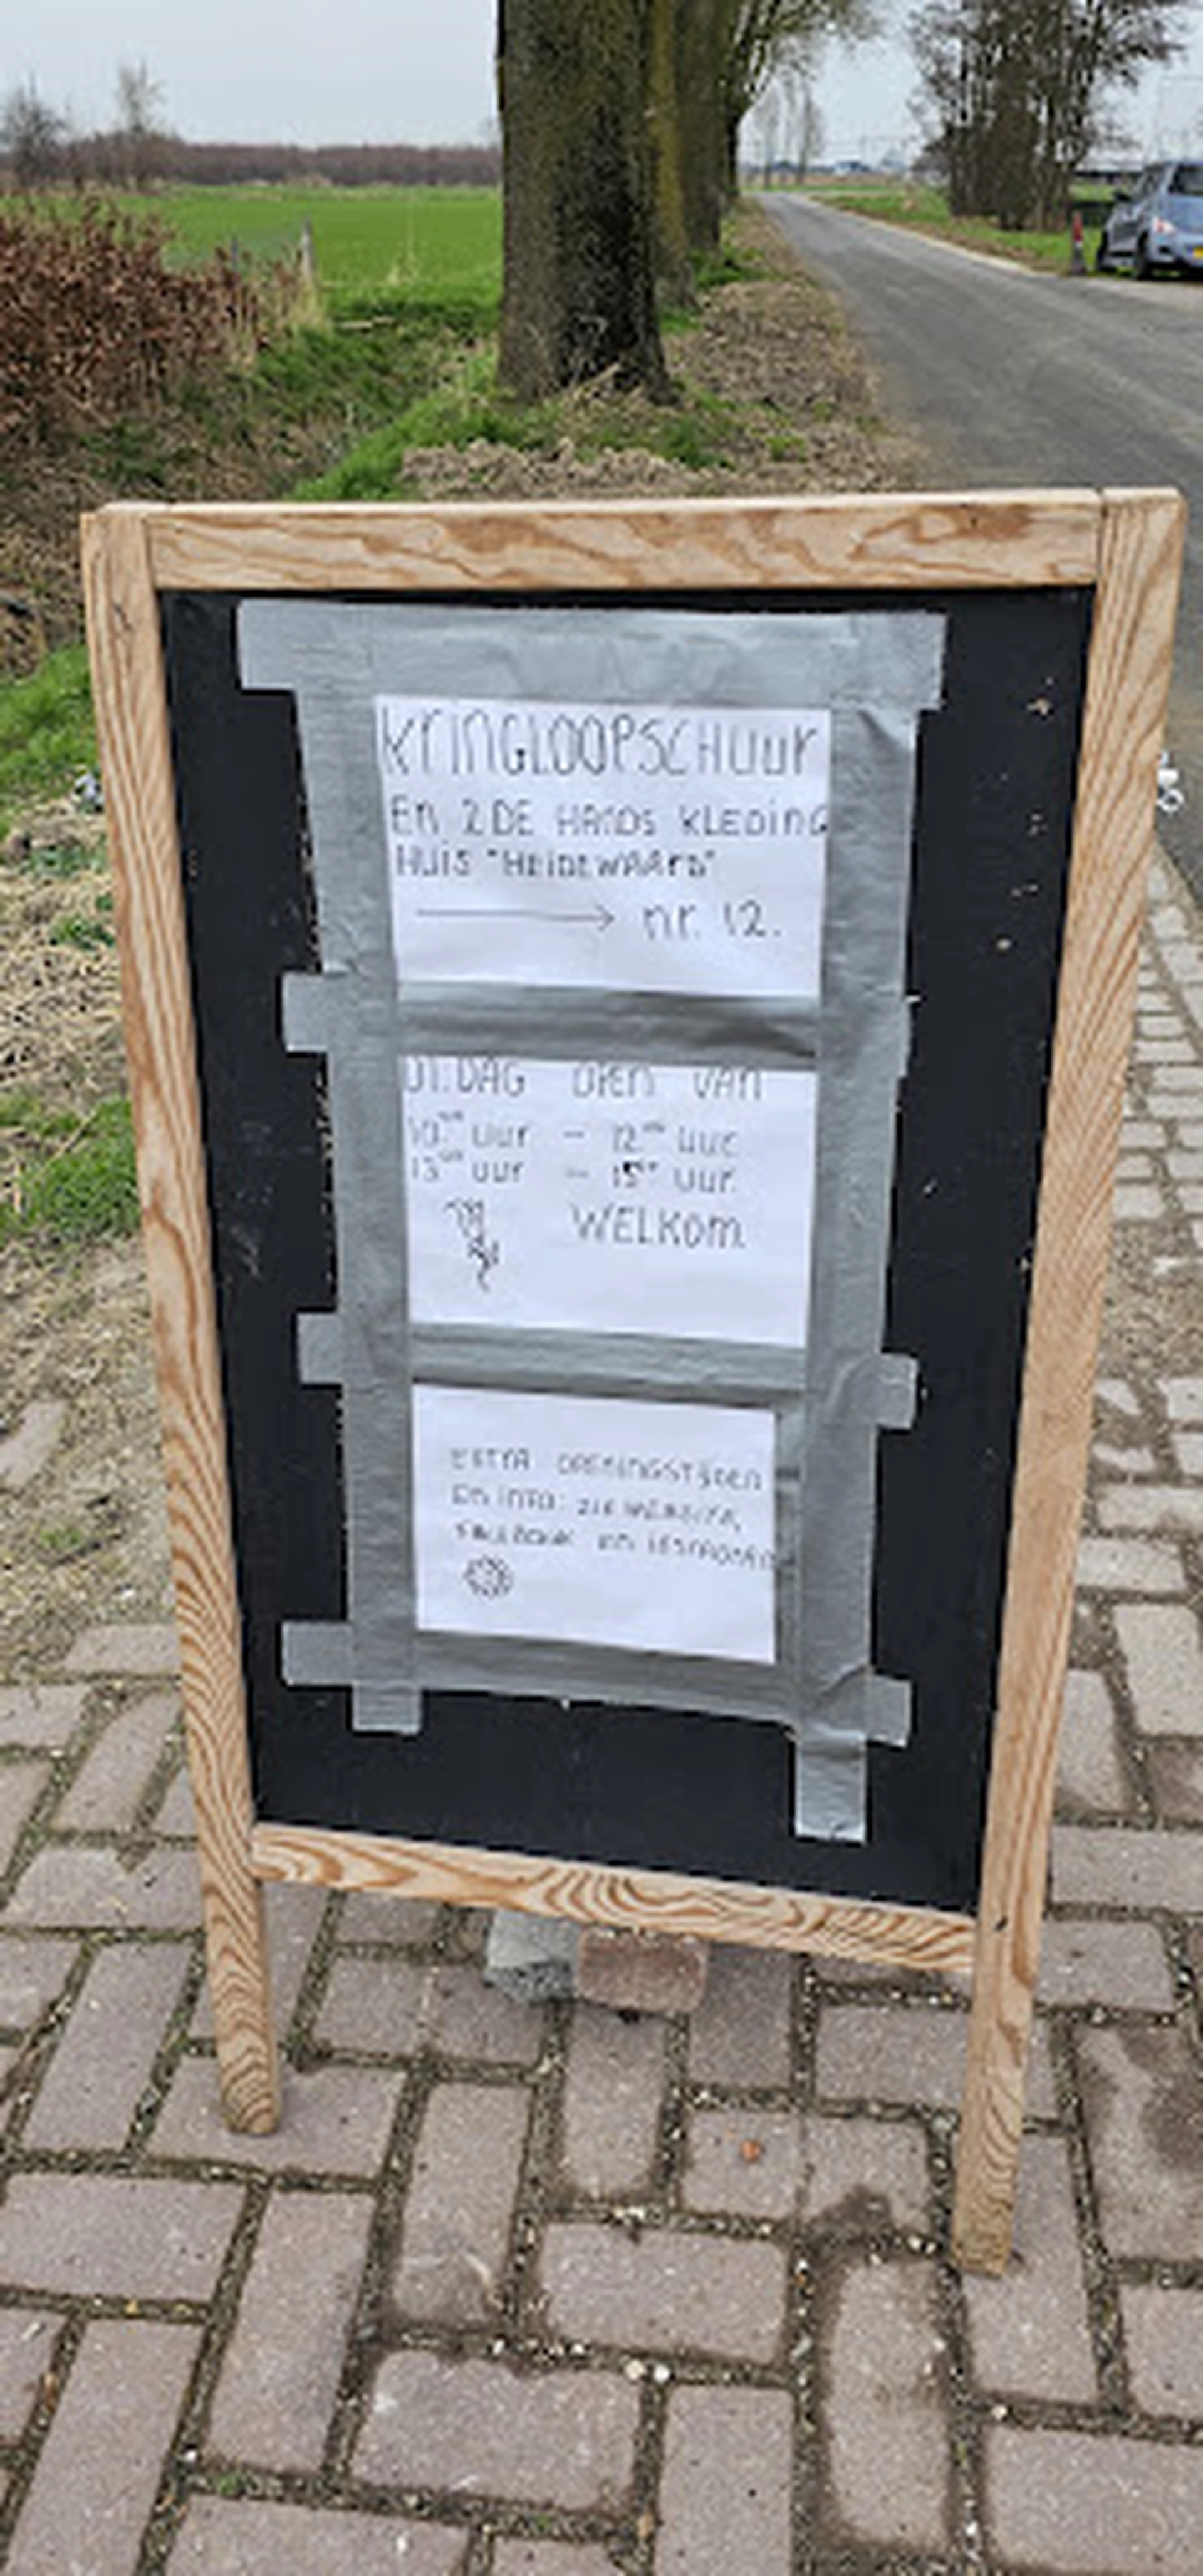 KRINGLOOPSCHUUR
En 2DE HANDS KLEDING
HUIS "HEIDEWAARD"
→ nr. 12.
DI.DAG OPEN VAN
10.00 uur - 12.00 uur
13.00 uur - 15.00 uur.
WELKOM
EXTRA OPENINGSTIJDEN
EN INFO: ZIE WEBSITE,
FACEBOOK EN